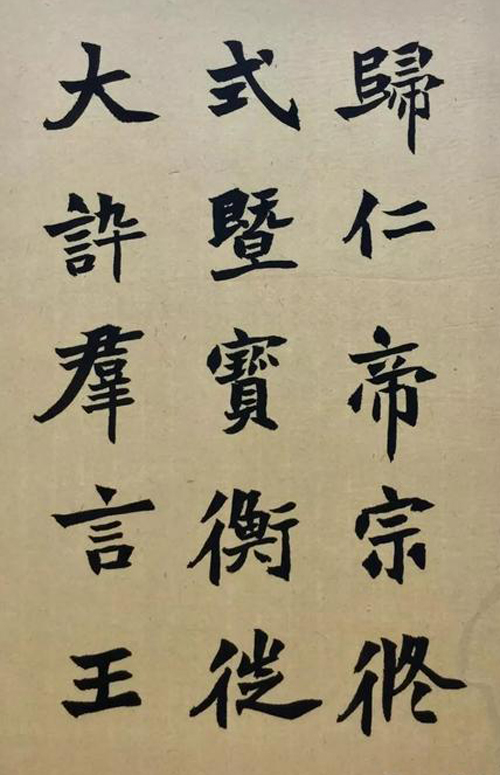 歸仁帝宗
式暨寶衡徙
大許羣言王